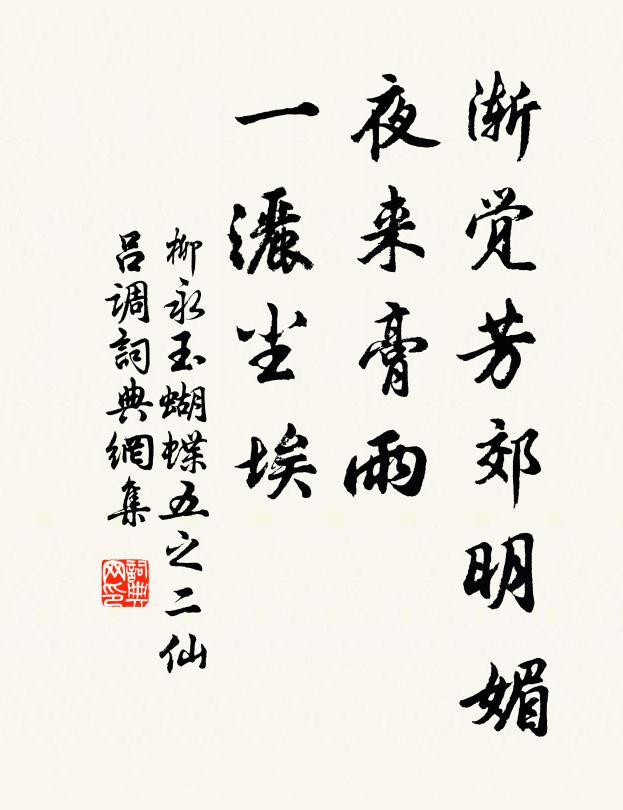 渐觉芳郊明媚
夜来膏雨
一灑尘埃
柳永玉蝴蝶五之二仙
吕调詞典網集
詞典网印